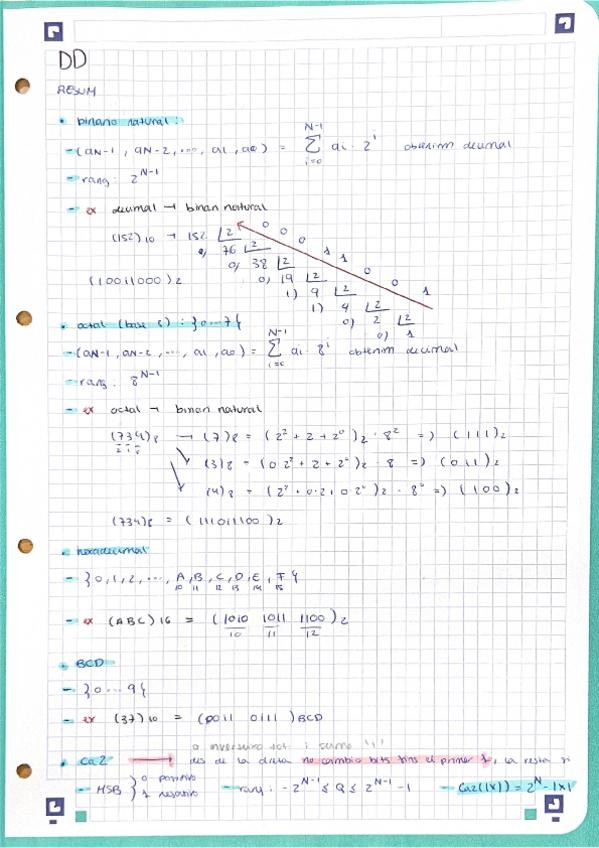 DD
RESUM
• binario natural:
- (aN-1, aN-2, ..., a1, a0) = N-1 Σ i=0 ai · 2^i obtenim decimal
- rang: 2^N-1
- ex decimal → binari natural
(152)10 → 152 |2
0) 76 |2
0) 38 |2
(10011000)2 0) 19 |2
1) 9 |2
1) 4 |2
0) 2 |2
0) 1
0 0 0 1 1 0 0 1
• octal (base 8): }0...7{
- (aN-1, aN-2, ..., a1, a0) = N-1 Σ i=0 ai · 8^i obtenim decimal
- rang: 8^N-1
- ex octal → binari natural
(734)8 → (7)8 = (2² + 2 + 2⁰)2 · 8² => (111)2
2 1 0
(3)8 = (0·2² + 2 + 2⁰)2 · 8 => (011)2
(4)8 = (2² + 0·2 + 0·2⁰)2 · 8⁰ => (100)2
(734)8 = (111011100)2
• hexadecimal
- }0,1,2,..., A, B, C, D, E, F{
10 11 12 13 14 15
- ex (ABC)16 = (1010 1011 1100)2
10 11 12
• BCD
- }0...9{
- ex (37)10 = (0011 0111)BCD
o inverteixo tot i sumo '1'
• Ca2 → des de la dreta no cambio bits fins el primer 1, la resta sí
- MSB } 0 positivo
1 negativo
- rang: -2^N-1 ≤ Q ≤ 2^N-1 - 1
- Ca2(|X|) = 2^N - |X|